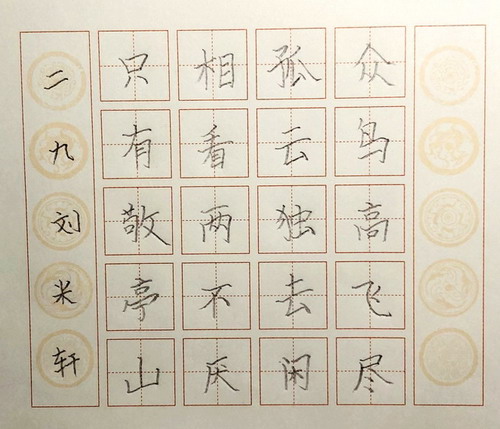 众鸟高飞尽
孤云独去闲
相看两不厌
只有敬亭山
二九刘米轩